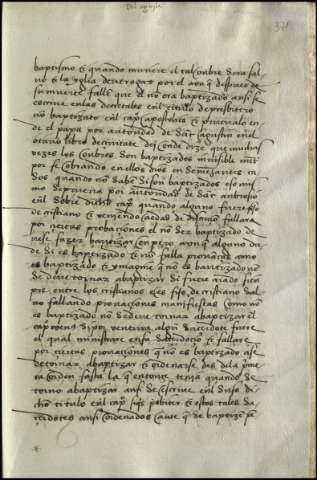 baptismo E quando muriere el tal onbre sera sal
uo E la yglia deue rogar por el avn que despues de
su muerte falle que el no era baptizado ansi se
escriue en las decretales enl titulo de presbitero
no baptizato enl capº apostolica E prueualo en
de el papa por autoridad de sant agustin enl
otauo libro de ciuitate dei onde dize que muchas
vezes los onbres son baptizados inuisible mēte
por fe obrando en ellos dios en semejantes ca
sos quando no saben si son baptizados eso mis
mo se prueua por autoridad de sant ambrosio
enl sobre dicho capº quando alguno fuere fijo
de cristiano E veniendo a edad de discricion fallare
por ciertas probaciones el no ser baptizado de
uese fazer baptizar enpero avn que alguno du
de si es baptizado E no falla prouança como
es baptizado E ymagine que no es baptizado no
se deue tornar abaptizar si fue criado siem
pre entre los cristianos e es fijo de cristiano sal
uo fallando prouaciones manifiestas como no
es baptizado no se deue tornar abaptizar el
capº veniens si por ventura algun sacerdote fuere
el qual ministrare en su E fallare
por ciertas prouaciones que no es baptizado ase
de tornar abaptizar E ordenarse des dela prime
ra orden fasta la que entonçe tenia quando se
torno abaptizar ansi se escriue enl suso di
cho titulo enl capº si quis presbiter E estos tales sa
cerdotes ansi ordenados ante que se baptizen